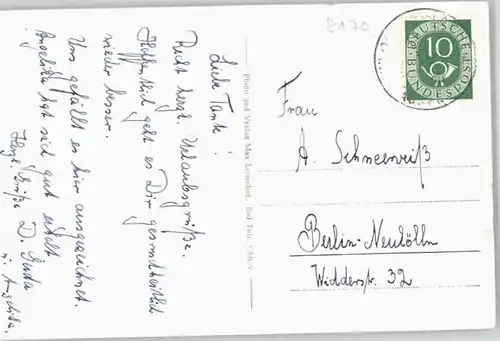 Liebe Tante!
Recht herzl. Urlaubsgrüße.
Hoffentlich geht es Dir gesundheitlich
wieder besser.
Uns gefällt es hier ausgezeichnet.
Angelika hat sich gut erholt
Herzl. Grüße D. Gerda
u. Angelika.
Photo und Verlag Max Lerpscher, Bad Tölz, Obb.
8170
DEUTSCHE
BUNDESPOST
10
Frau
A. Schneeweiß
Berlin-Neukölln
Widderstr. 32